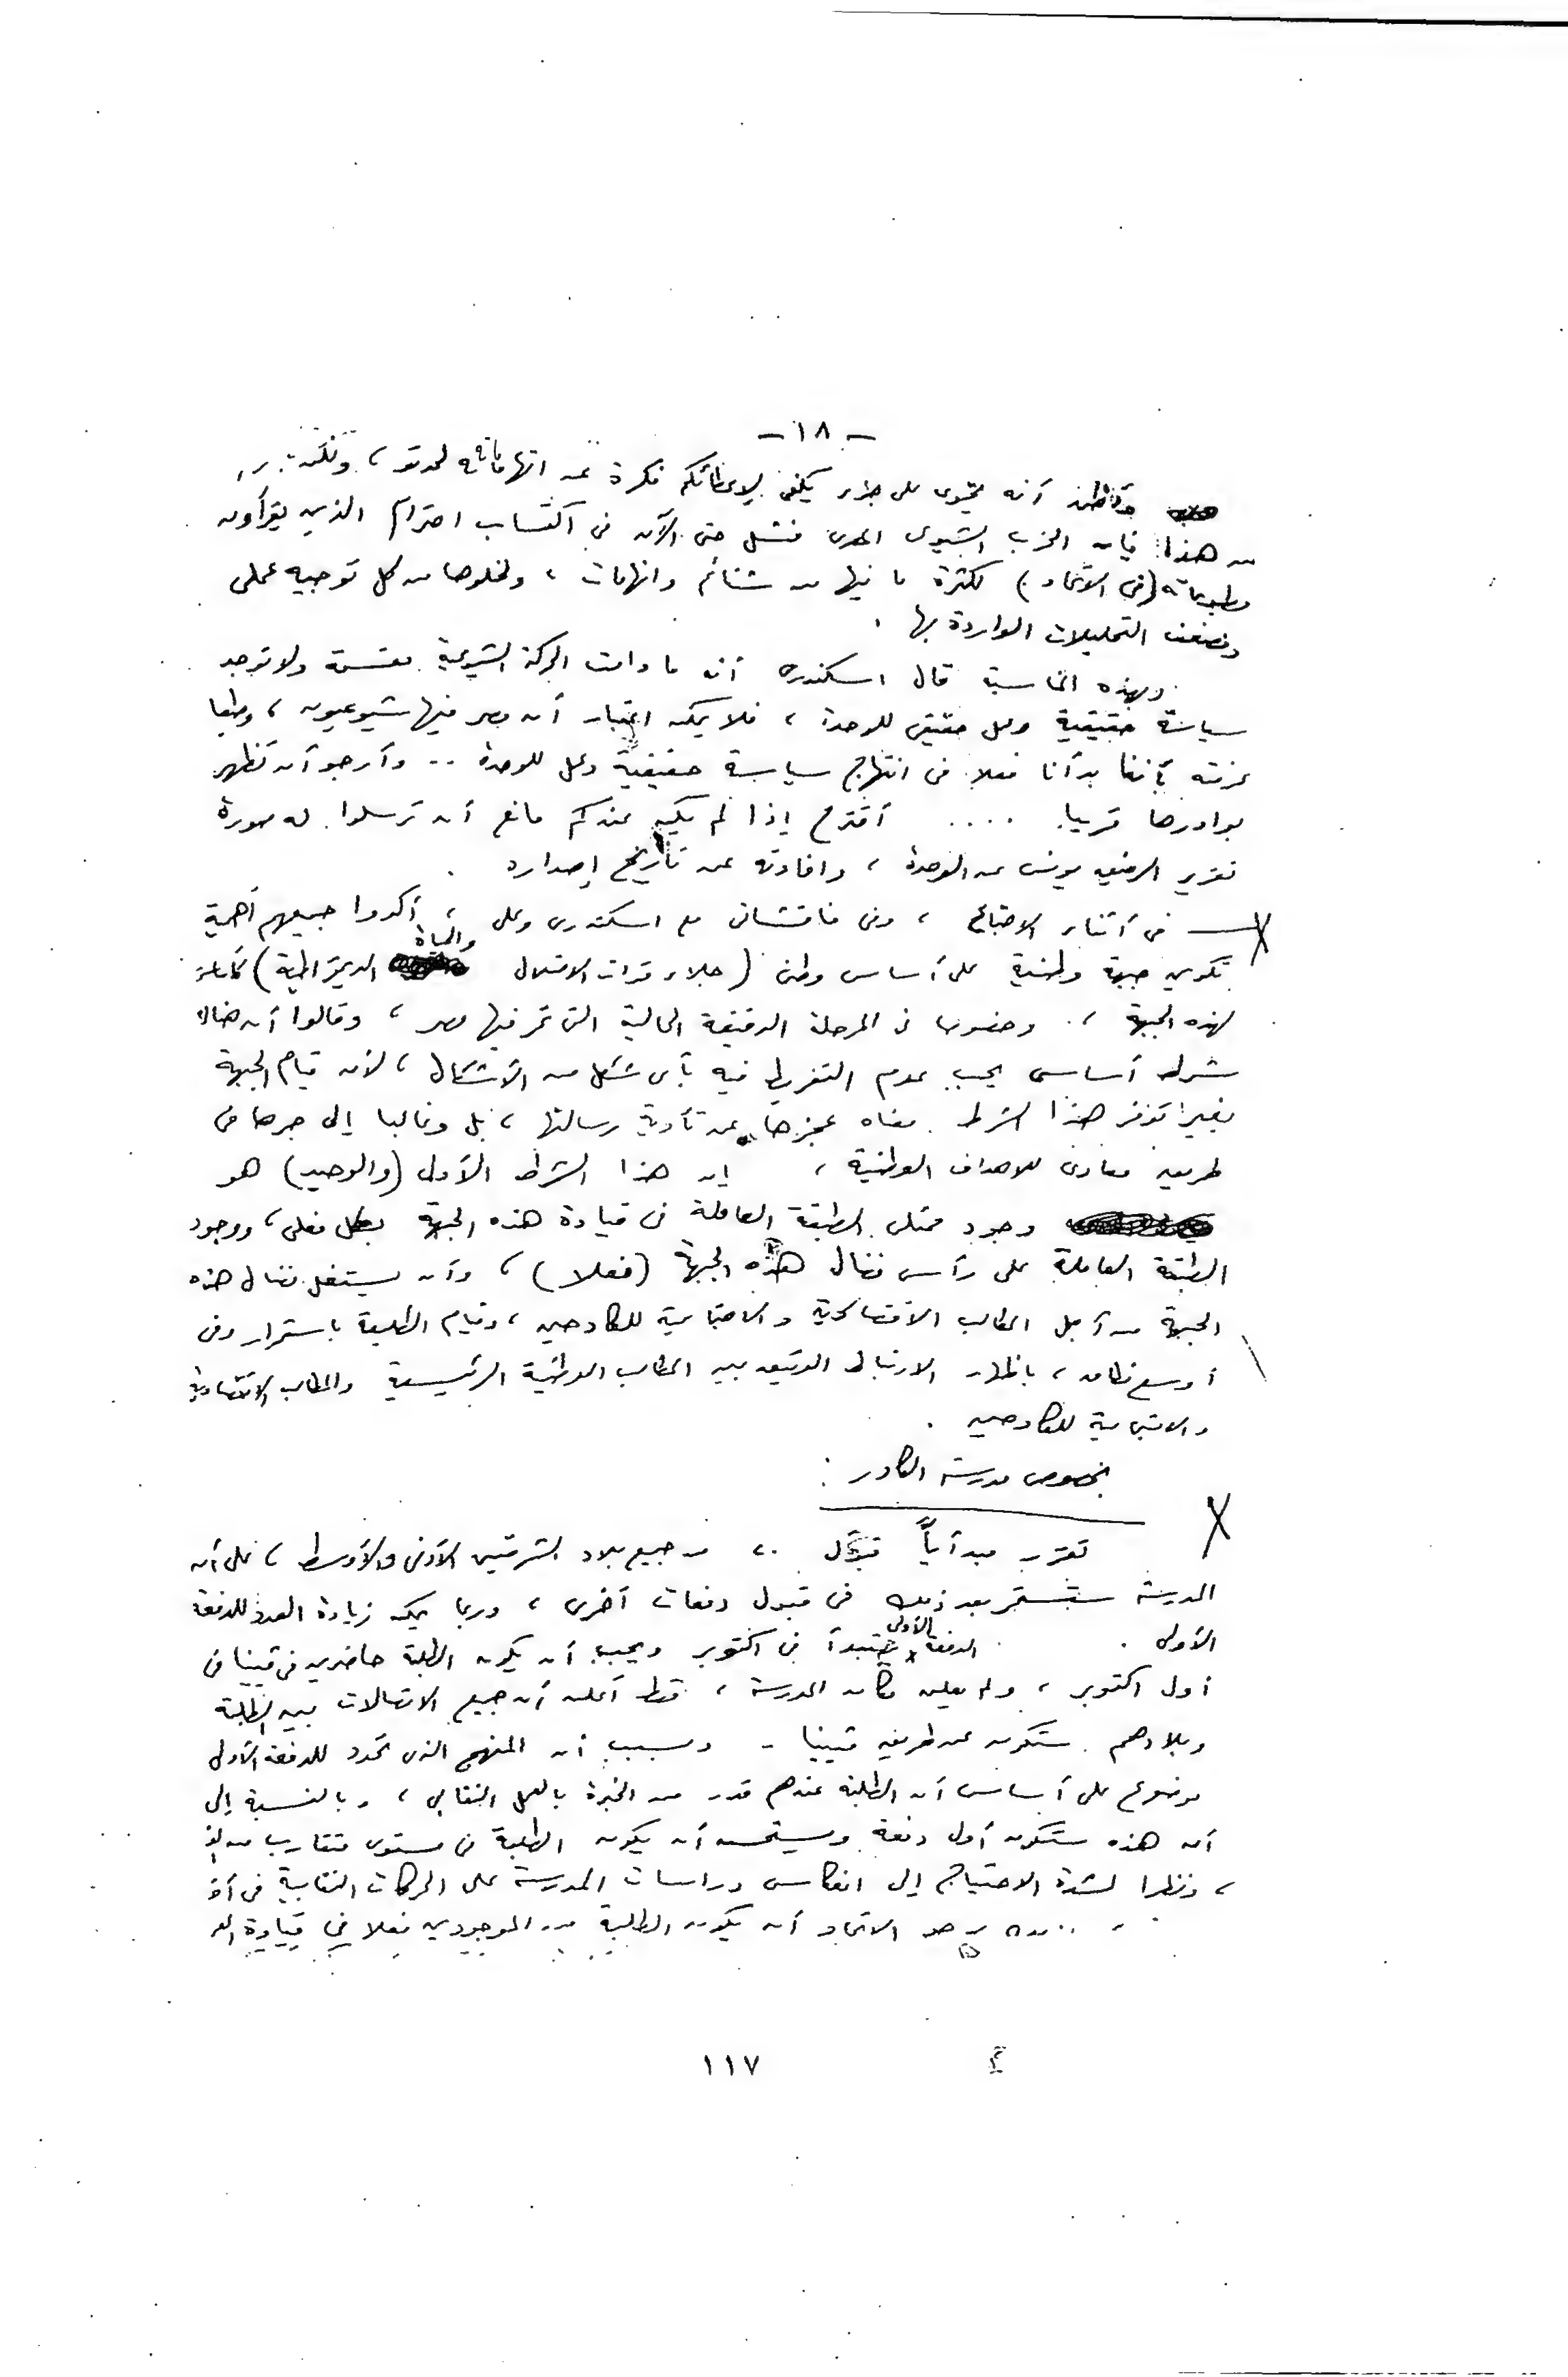 - ١٨ -
وأظن أنه يحتوى على جزء يكفى لإعطائكم فكرة عن اتهاماته لحدتو ،
من هذا فإن الحزب الشيوعى المصرى فشل حتى الآن فى اكتساب احترام الذين يقرأون
مطبوعاته (فى الاتحاد) لكثرة ما فيها من شتائم واتهامات ، ولخلوها من كل توجيه عملى
وضعف التحليلات الواردة بها .
وبهذه المناسبة قال اسكندرى أنه ما دامت الحركة الشيوعية مقسمة ولا توجد
سياسة حقيقية وعمل حقيقى للوحدة ، فلا يمكن اعتبار أن مصر فيها شيوعيون ، وطبعا
عرفته بأننا بدأنا فعلا فى انتهاج سياسة حقيقية وعمل للوحدة .. وأرجو أن تظهر
بوادرها قريبا .... أقترح إذا لم يكن عندكم مانع أن ترسلوا له صورة
تقرير الرفيق يونس عن الوحدة ، وافادته عن تاريخ إصداره .
فى أثناء الاجتماع ، وفى مناقشاتى مع اسكندرى وعلى ، أكدوا جميعهم أهمية
تكوين جبهة وطنية على أساس وطنى (جلاء قوات الاحتلال والحياة الديمقراطية) كأساس
لهذه الجبهة ، وخصوصا فى المرحلة الدقيقة الحالية التى تمر فيها مصر ، وقالوا أن هناك
شرط أساسى يجب عدم التفريط فيه بأى شكل من الأشكال ، لأن قيام الجبهة
بغير توفر هذا الشرط معناه عجزها عن تأدية رسالتها ، بل وغالبا إلى جرها فى
طريق معادى للاهداف الوطنية ، إن هذا الشرط الأول (والوحيد) هو
وجود ممثلى الطبقة العاملة فى قيادة هذه الجبهة بشكل فعلى ، ووجود
الطبقة العاملة على رأس نضال هذه الجبهة (فعلا) ، وأن يستغل نضال هذه
الجبهة من أجل المطالب الاقتصادية والاجتماعية للكادحين ، وقيام الطليعة باستمرار وفى
أوسع نطاق ، باظهار الارتباط الوثيق بين المطالب الوطنية الرئيسية والمطالب الاقتصادية
والاجتماعية للكادحين .
بخصوص مدرسة الكادر :
تقرر مبدأياً قبول ٢٠ من جميع بلاد الشرقين الأدنى والأوسط ، على أن
المدرسة ستستمر بعد ذلك فى قبول دفعات أخرى ، وربما يمكن زيادة العدد للدفعة
الأولى . الدفعة الأولى ستبدأ فى اكتوبر ويجب أن يكون الطلبة حاضرين فى فيينا فى
أول اكتوبر ، ولم يعلن مكان المدرسة ، فقط أعلن أن جميع الاتصالات بين الطلبة
وبلادهم ستكون عن طريق فيينا - وبسبب أن المنهج الذى تحدد للدفعة الأولى
موضوع على أساس أن الطلبة عندهم قدر من الخبرة بالعمل النقابى ، وبالنسبة إلى
أن هذه ستكون أول دفعة ويستحسن أن يكون الطلبة فى مستوى متقارب
، ونظرا لشدة الاحتياج إلى انعكاس دراسات المدرسة على الحركات النقابية فى
يرجو الاتحاد أن يكون الطلبة من الموجودين فعلا فى قيادة
١١٧